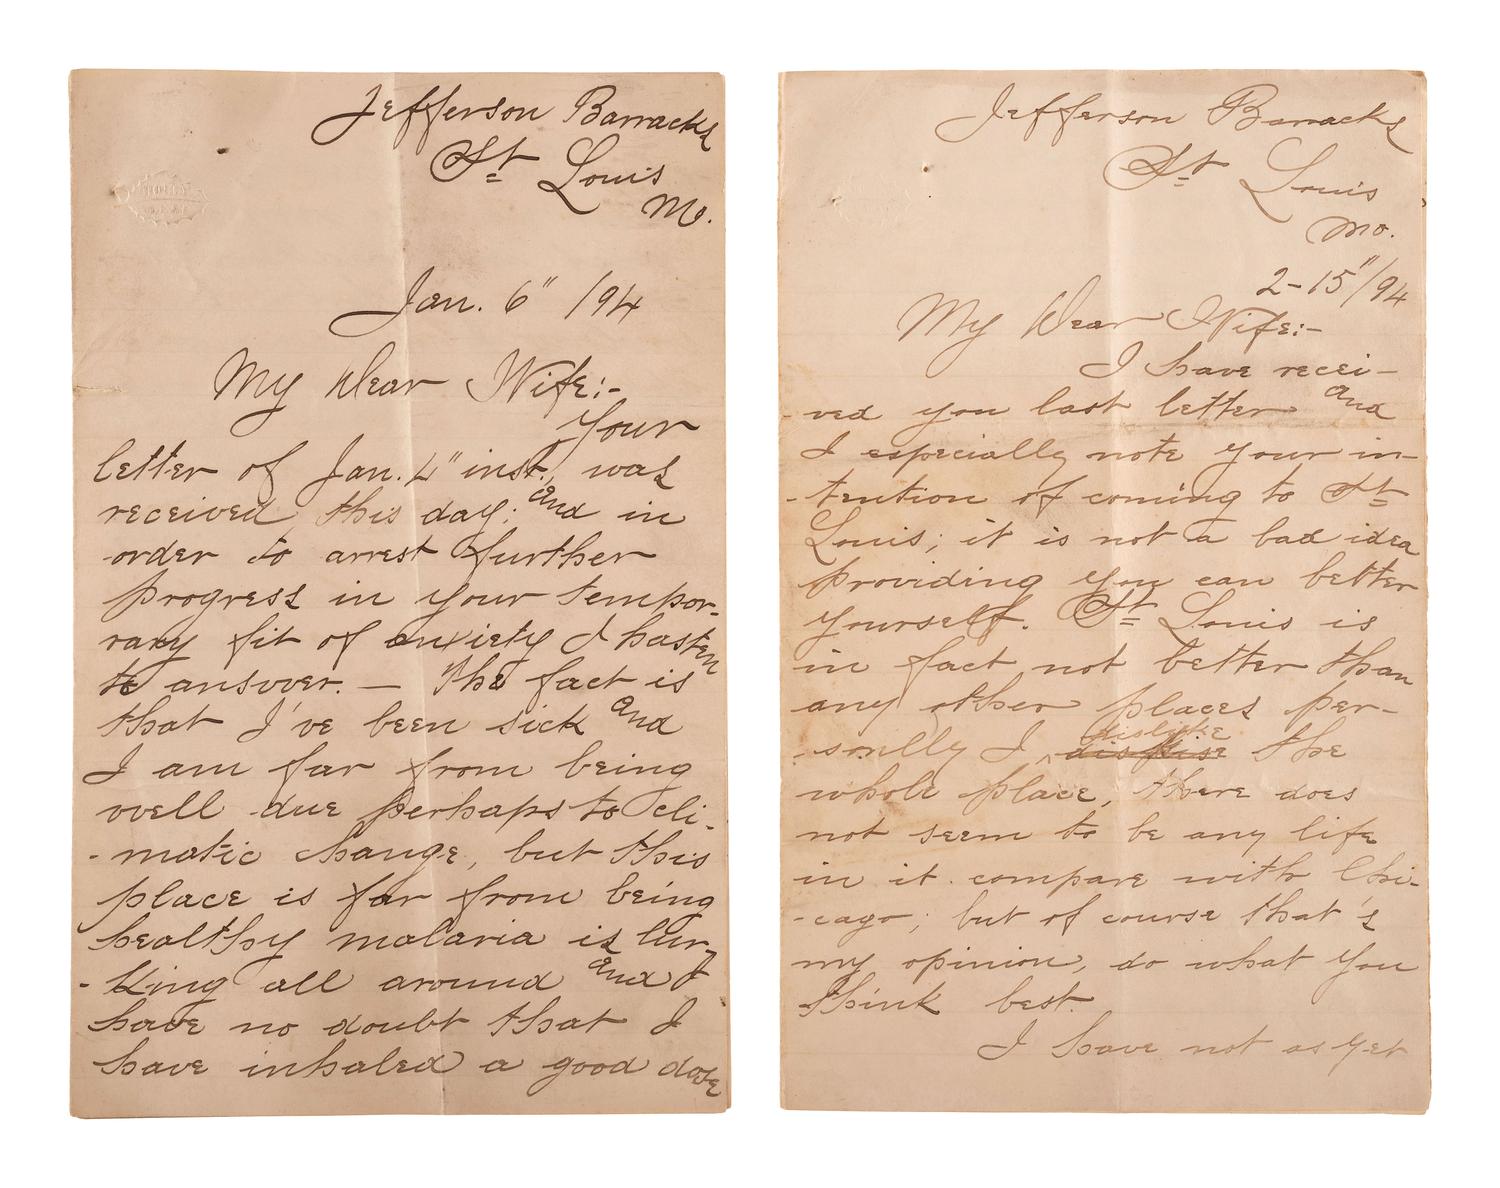 Jefferson Barracks
St Louis
Mo.
Jan. 6" /94
My Dear Wife:-
Your
letter of Jan. 4" inst., was
received this day; and in
order to arrest further
progress in your tempor-
rary fit of anxiety I hasten
to answer. — The fact is
that I've been sick and
I am far from being
well due perhaps to cli-
-matic change, but this
place is far from being
healthy malaria is lur-
-king all around and I
have no doubt that I
have inhaled a good dose
Jefferson Barracks
St Louis
Mo.
2-15"/94
My Dear Wife:-
I have recei-
ved you last letter and
I especially note your in-
-tention of coming to St
Louis; it is not a bad idea
providing you can better
yourself. St Louis is
in fact not better than
any other places per-
-sonlly I dislike despise the
whole place, there does
not seem to be any life
in it. compare with Chi-
-cago; but of course that's
my opinion, do what you
think best.
I have not as yet